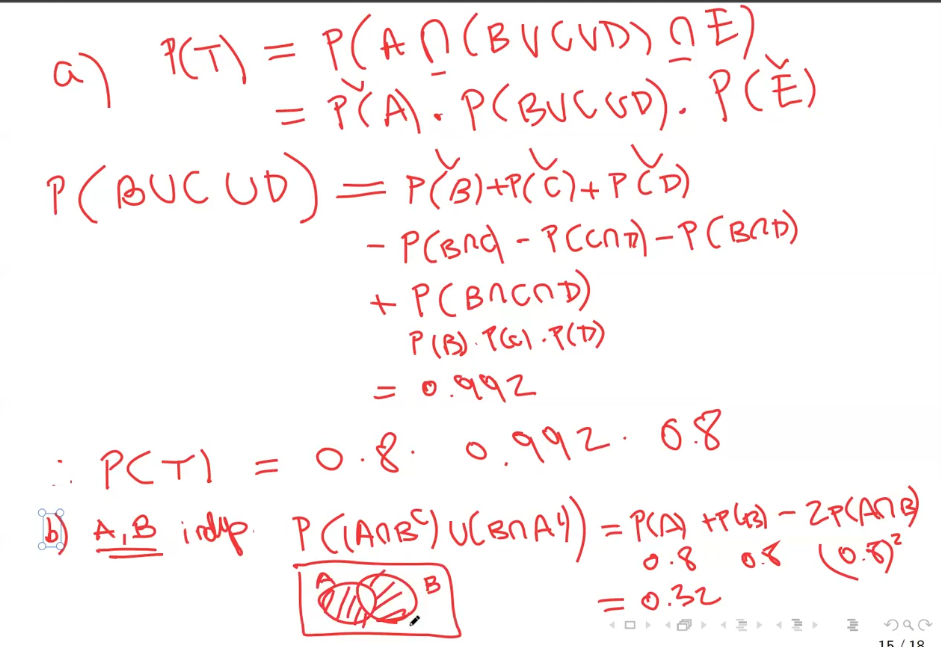 a) P(T) = P(A ∩ (B ∪ C ∪ D) ∩ E)
= P(A) . P(B ∪ C ∪ D) . P(E)
P(B ∪ C ∪ D) = P(B) + P(C) + P(D)
- P(B∩C) - P(C∩D) - P(B∩D)
+ P(B∩C∩D)
P(B) . P(C) . P(D)
= 0.992
∴ P(T) = 0.8 . 0.992 . 0.8
b) A, B indep. P((A∩Bᶜ) ∪ (B∩Aᶜ)) = P(A) + P(B) - 2P(A∩B)
0.8 0.8 (0.8)²
A B
= 0.32
15 / 18